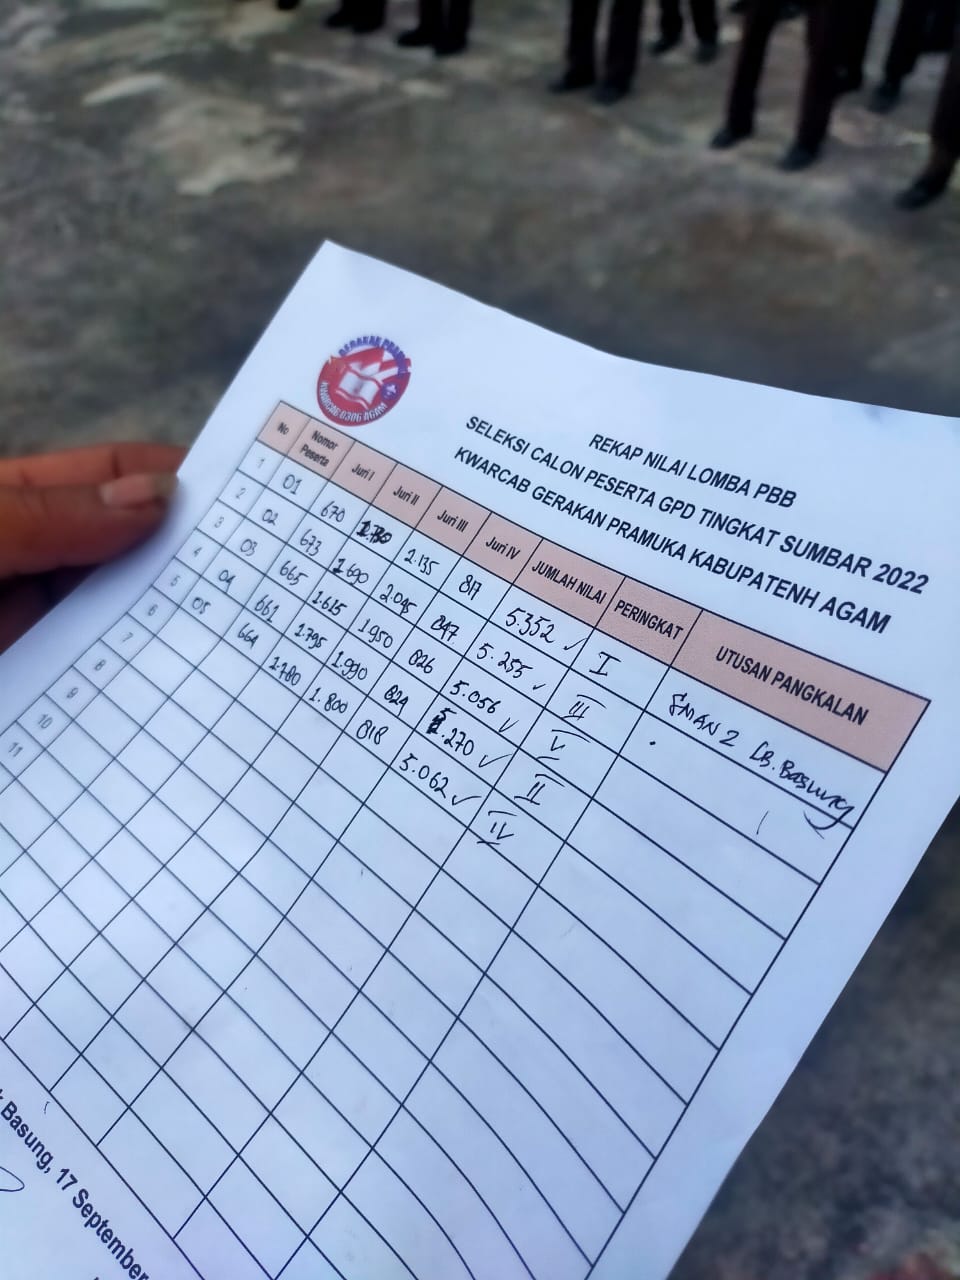 GERAKAN PRAMUKA
KWARCAB 0306 AGAM
REKAP NILAI LOMBA PBB
SELEKSI CALON PESERTA GPD TINGKAT SUMBAR 2022
KWARCAB GERAKAN PRAMUKA KABUPATENH AGAM
No Nomor Peserta Juri I Juri II Juri III Juri IV JUMLAH NILAI PERINGKAT UTUSAN PANGKALAN
1 01 670 1.730 2.135 817 5.352 ✓ I SMAN 2 LB. BASUNG
2 02 673 1.690 2.045 847 5.255 ✓ III
3 03 665 1.615 1.950 826 5.056 ✓ V
4 04 661 1.795 1.990 824 5.270 ✓ II
5 05 664 1.780 1.800 818 5.062 ✓ IV
6
7
8
9
10
11
Basung, 17 September